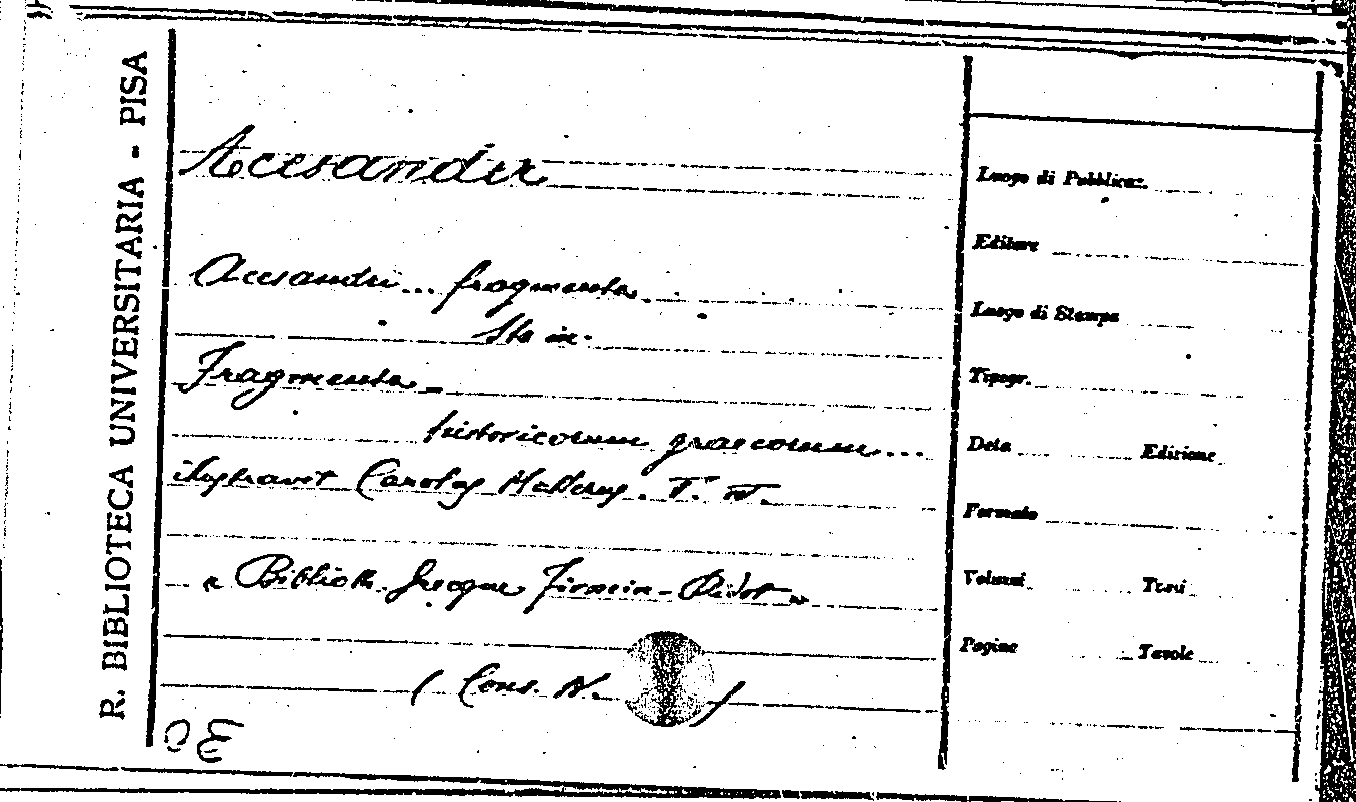 R. BIBLIOTECA UNIVERSITARIA - PISA
Acesander
Acesandri... fragmenta.
Sta in.
Fragmenta
historicorum graecorum...
illustravit Carolus Müllerus. T. IV.
« Biblioth. Grecque Firmin-Didot »
( Cons. N. )
Luogo di Pubblicaz.
Editore
Luogo di Stampa
Tipogr.
Data Edizione
Formato
Volumi Tomi
Pagine Tavole